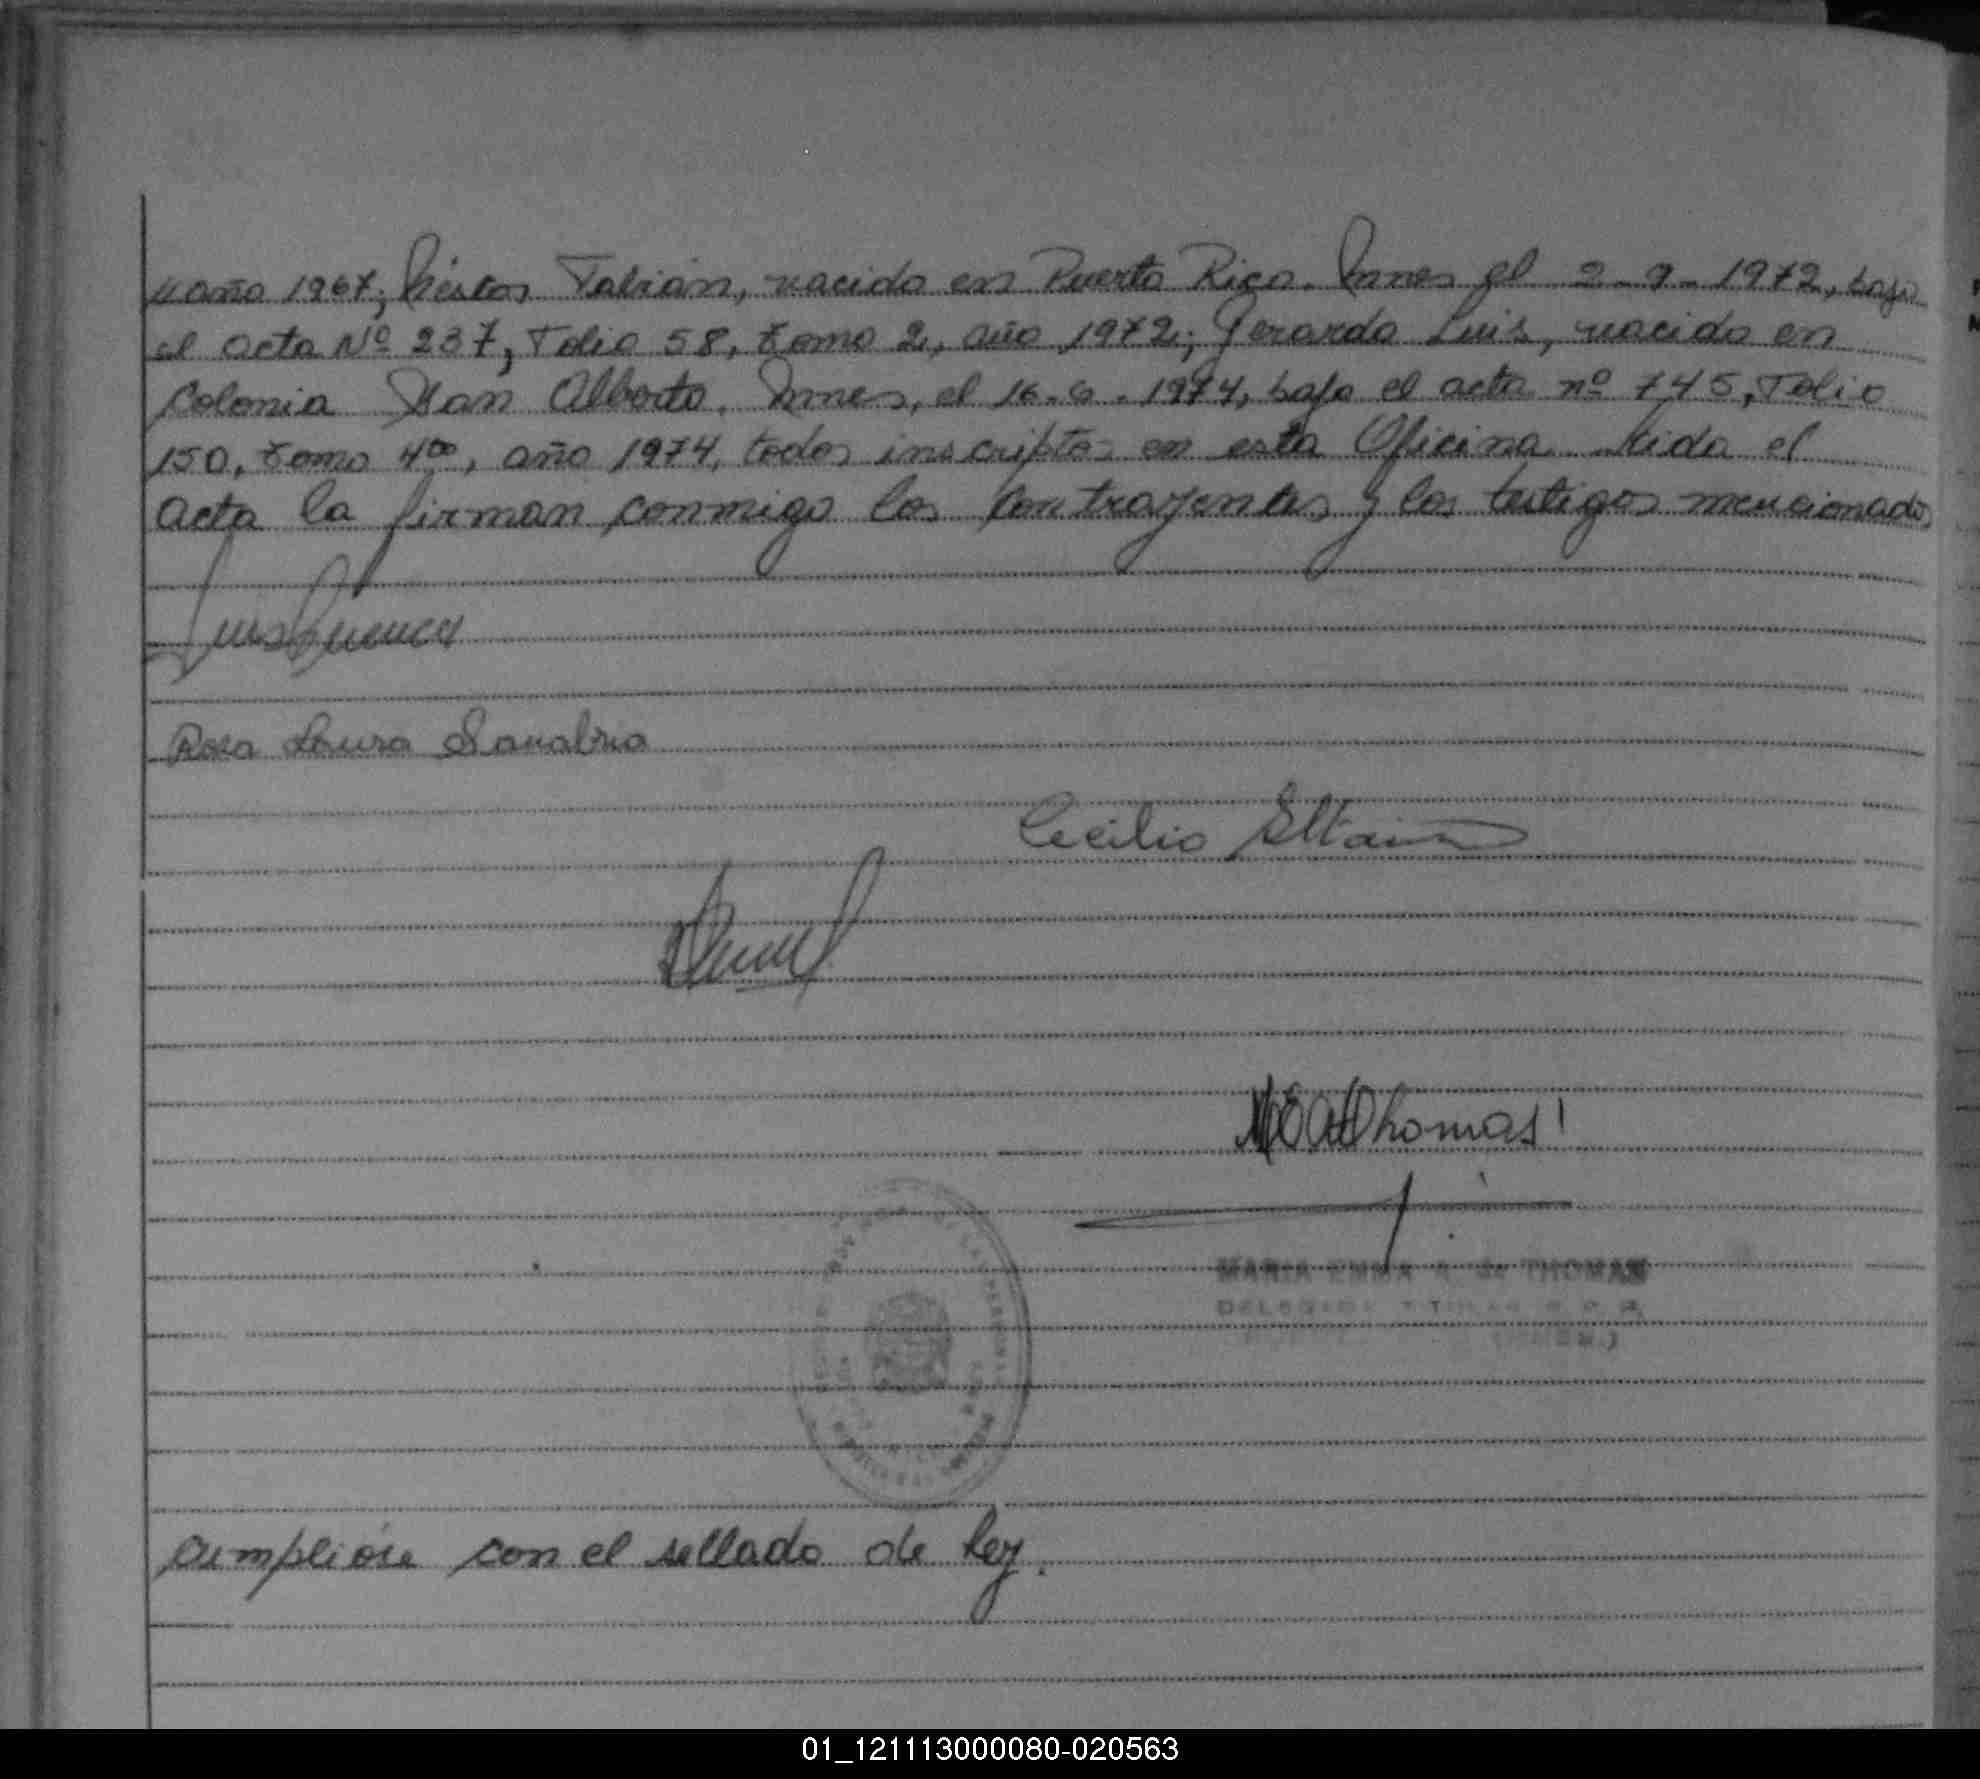 año 1967; Néstor Fabián, nacido en Puerto Rico. Mnes el 2-9-1972, bajo
el acta Nº 237, Folio 58, tomo 2, año 1972; Gerardo Luis, nacido en
Colonia San Alberto. Mnes, el 16-6-1974, bajo el acta nº 745, Folio
150, tomo 4to, año 1974, todos inscriptos en esta Oficina. Leida el
acta la firman conmigo los contrayentes y los testigos mencionados
Rosa Laura Sanabria
Cecilio
Thomas
MARIA EMMA A. de THOMAS
DELEGADA TITULAR R. P. P.
Cumplióse con el sellado de ley.
01_121113000080-020563